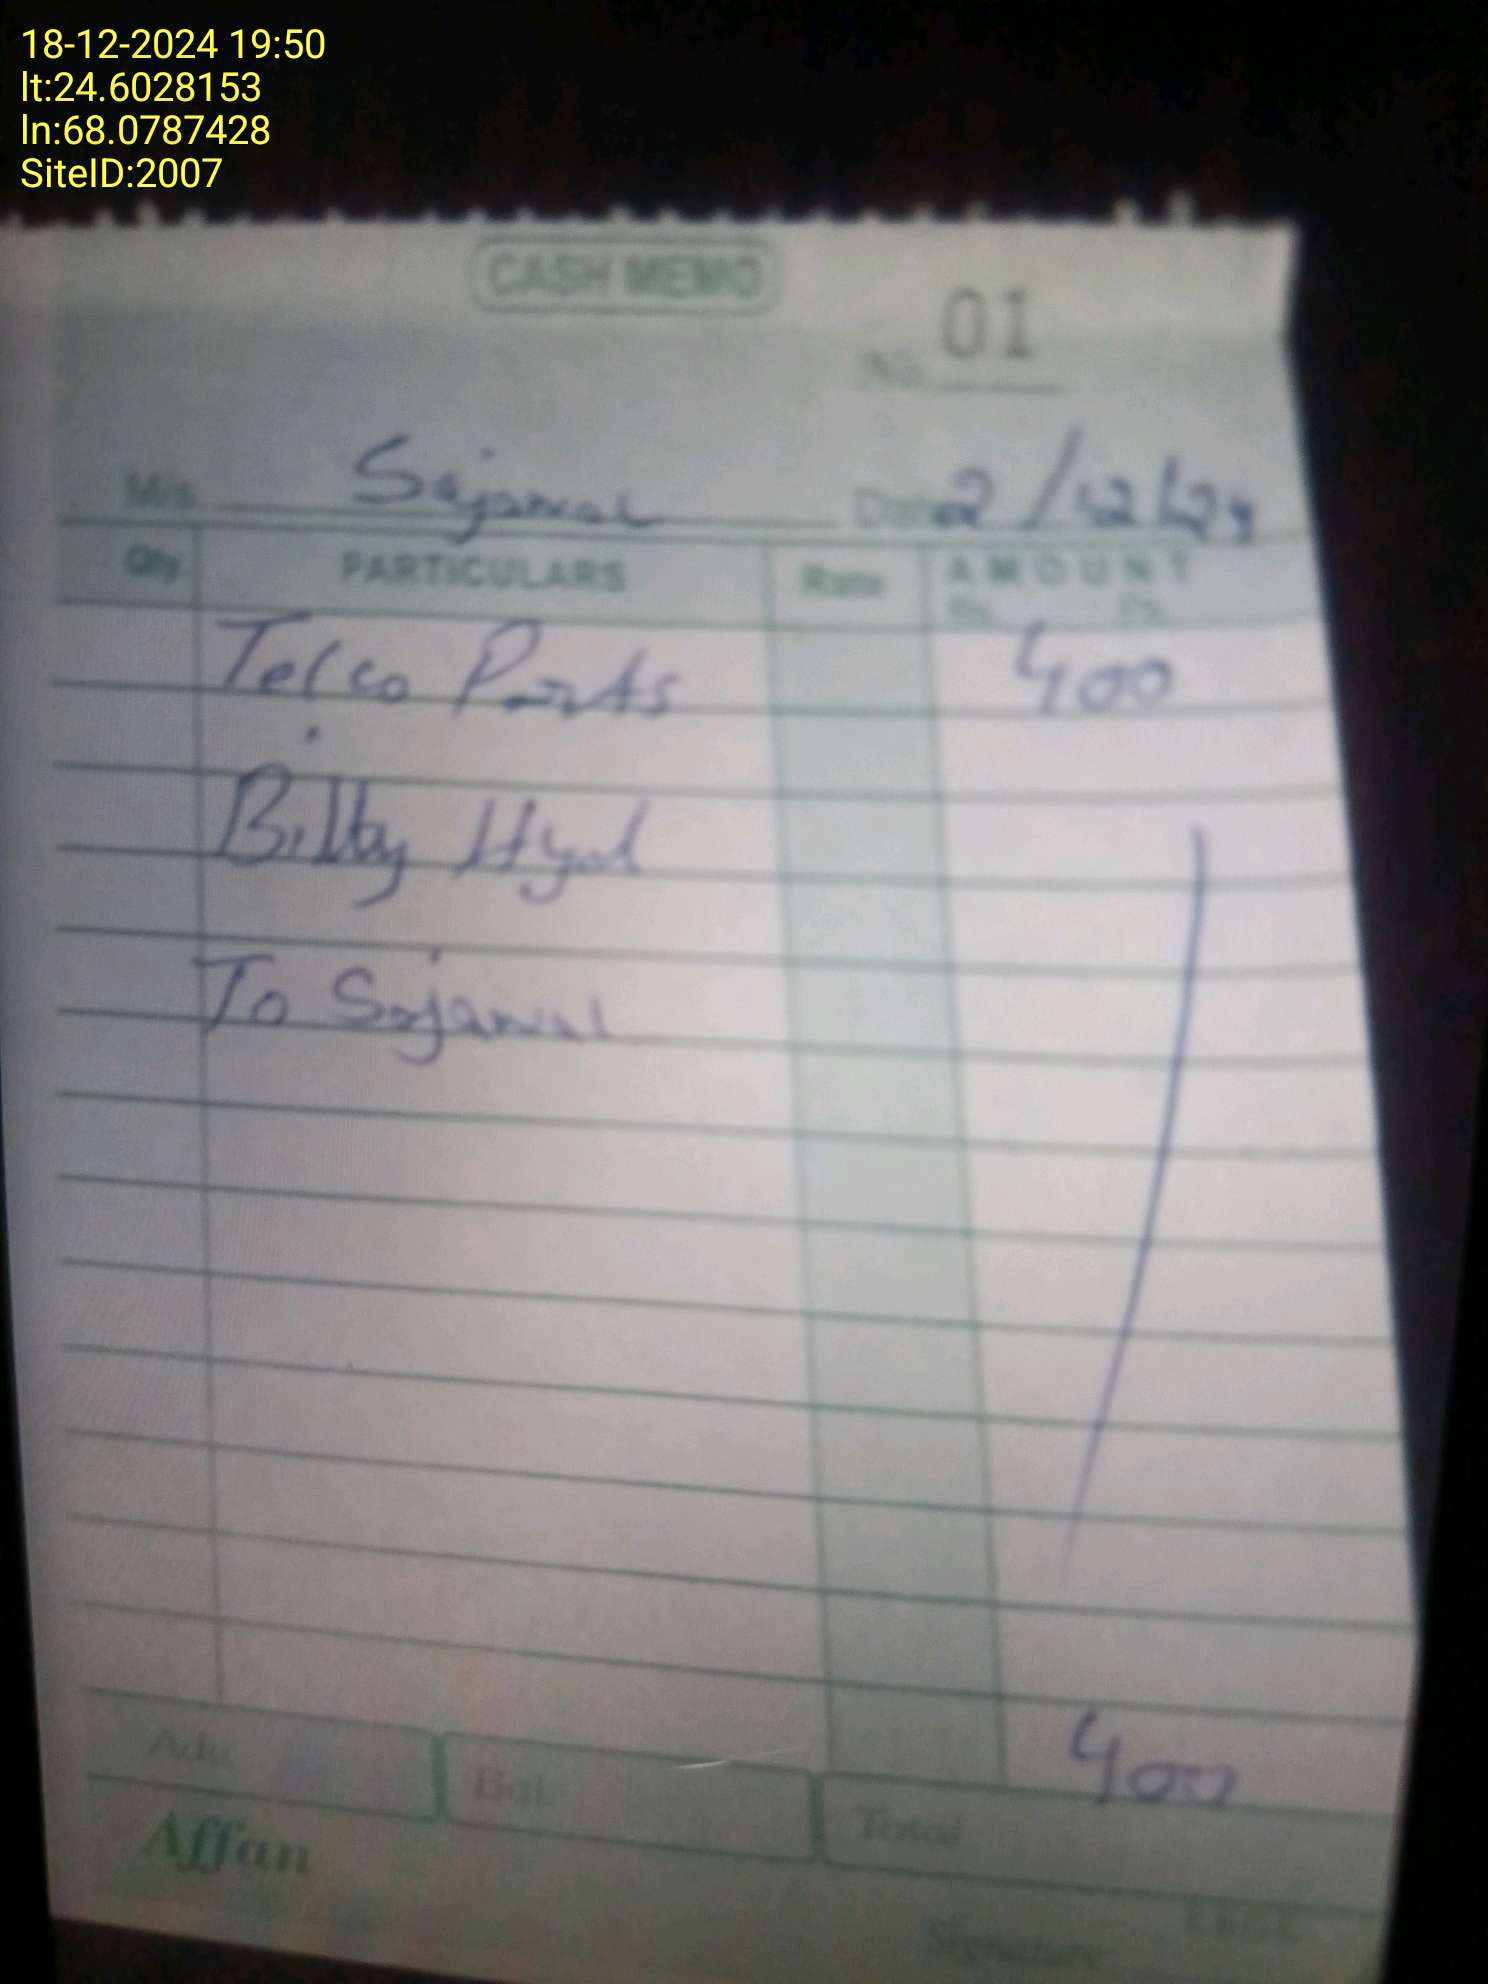 18-12-2024 19:50
lt:24.6028153
ln:68.0787428
SiteID:2007
CASH MEMO
No. 01
M/s Sajawal Date 2/12/24
Qty. PARTICULARS Rate AMOUNT
Rs. Ps.
Telco Parts 400
Hyd
To Sajawal
400
Adv. Bal. Total
Affan
Signature